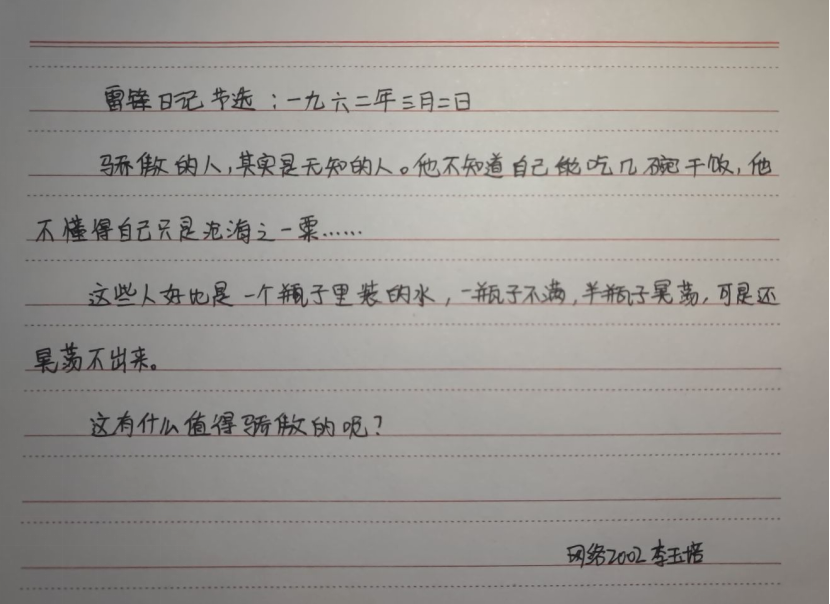 雷锋日记节选：一九六二年三月二日
骄傲的人，其实是无知的人。他不知道自己能吃几碗干饭，他
不懂得自己只是沧海之一粟……
这些人好比是一个瓶子里装的水，一瓶子不满，半瓶子晃荡，可是还
晃荡不出来。
这有什么值得骄傲的呢？
网络2002 李玉培